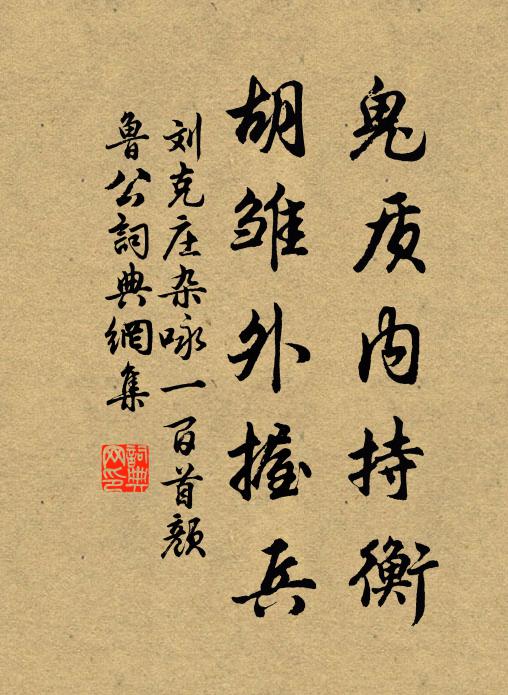 鬼质内持衡
胡雏外握兵
刘克庄杂咏一百首颜
鲁公詞典網集
詞典网印